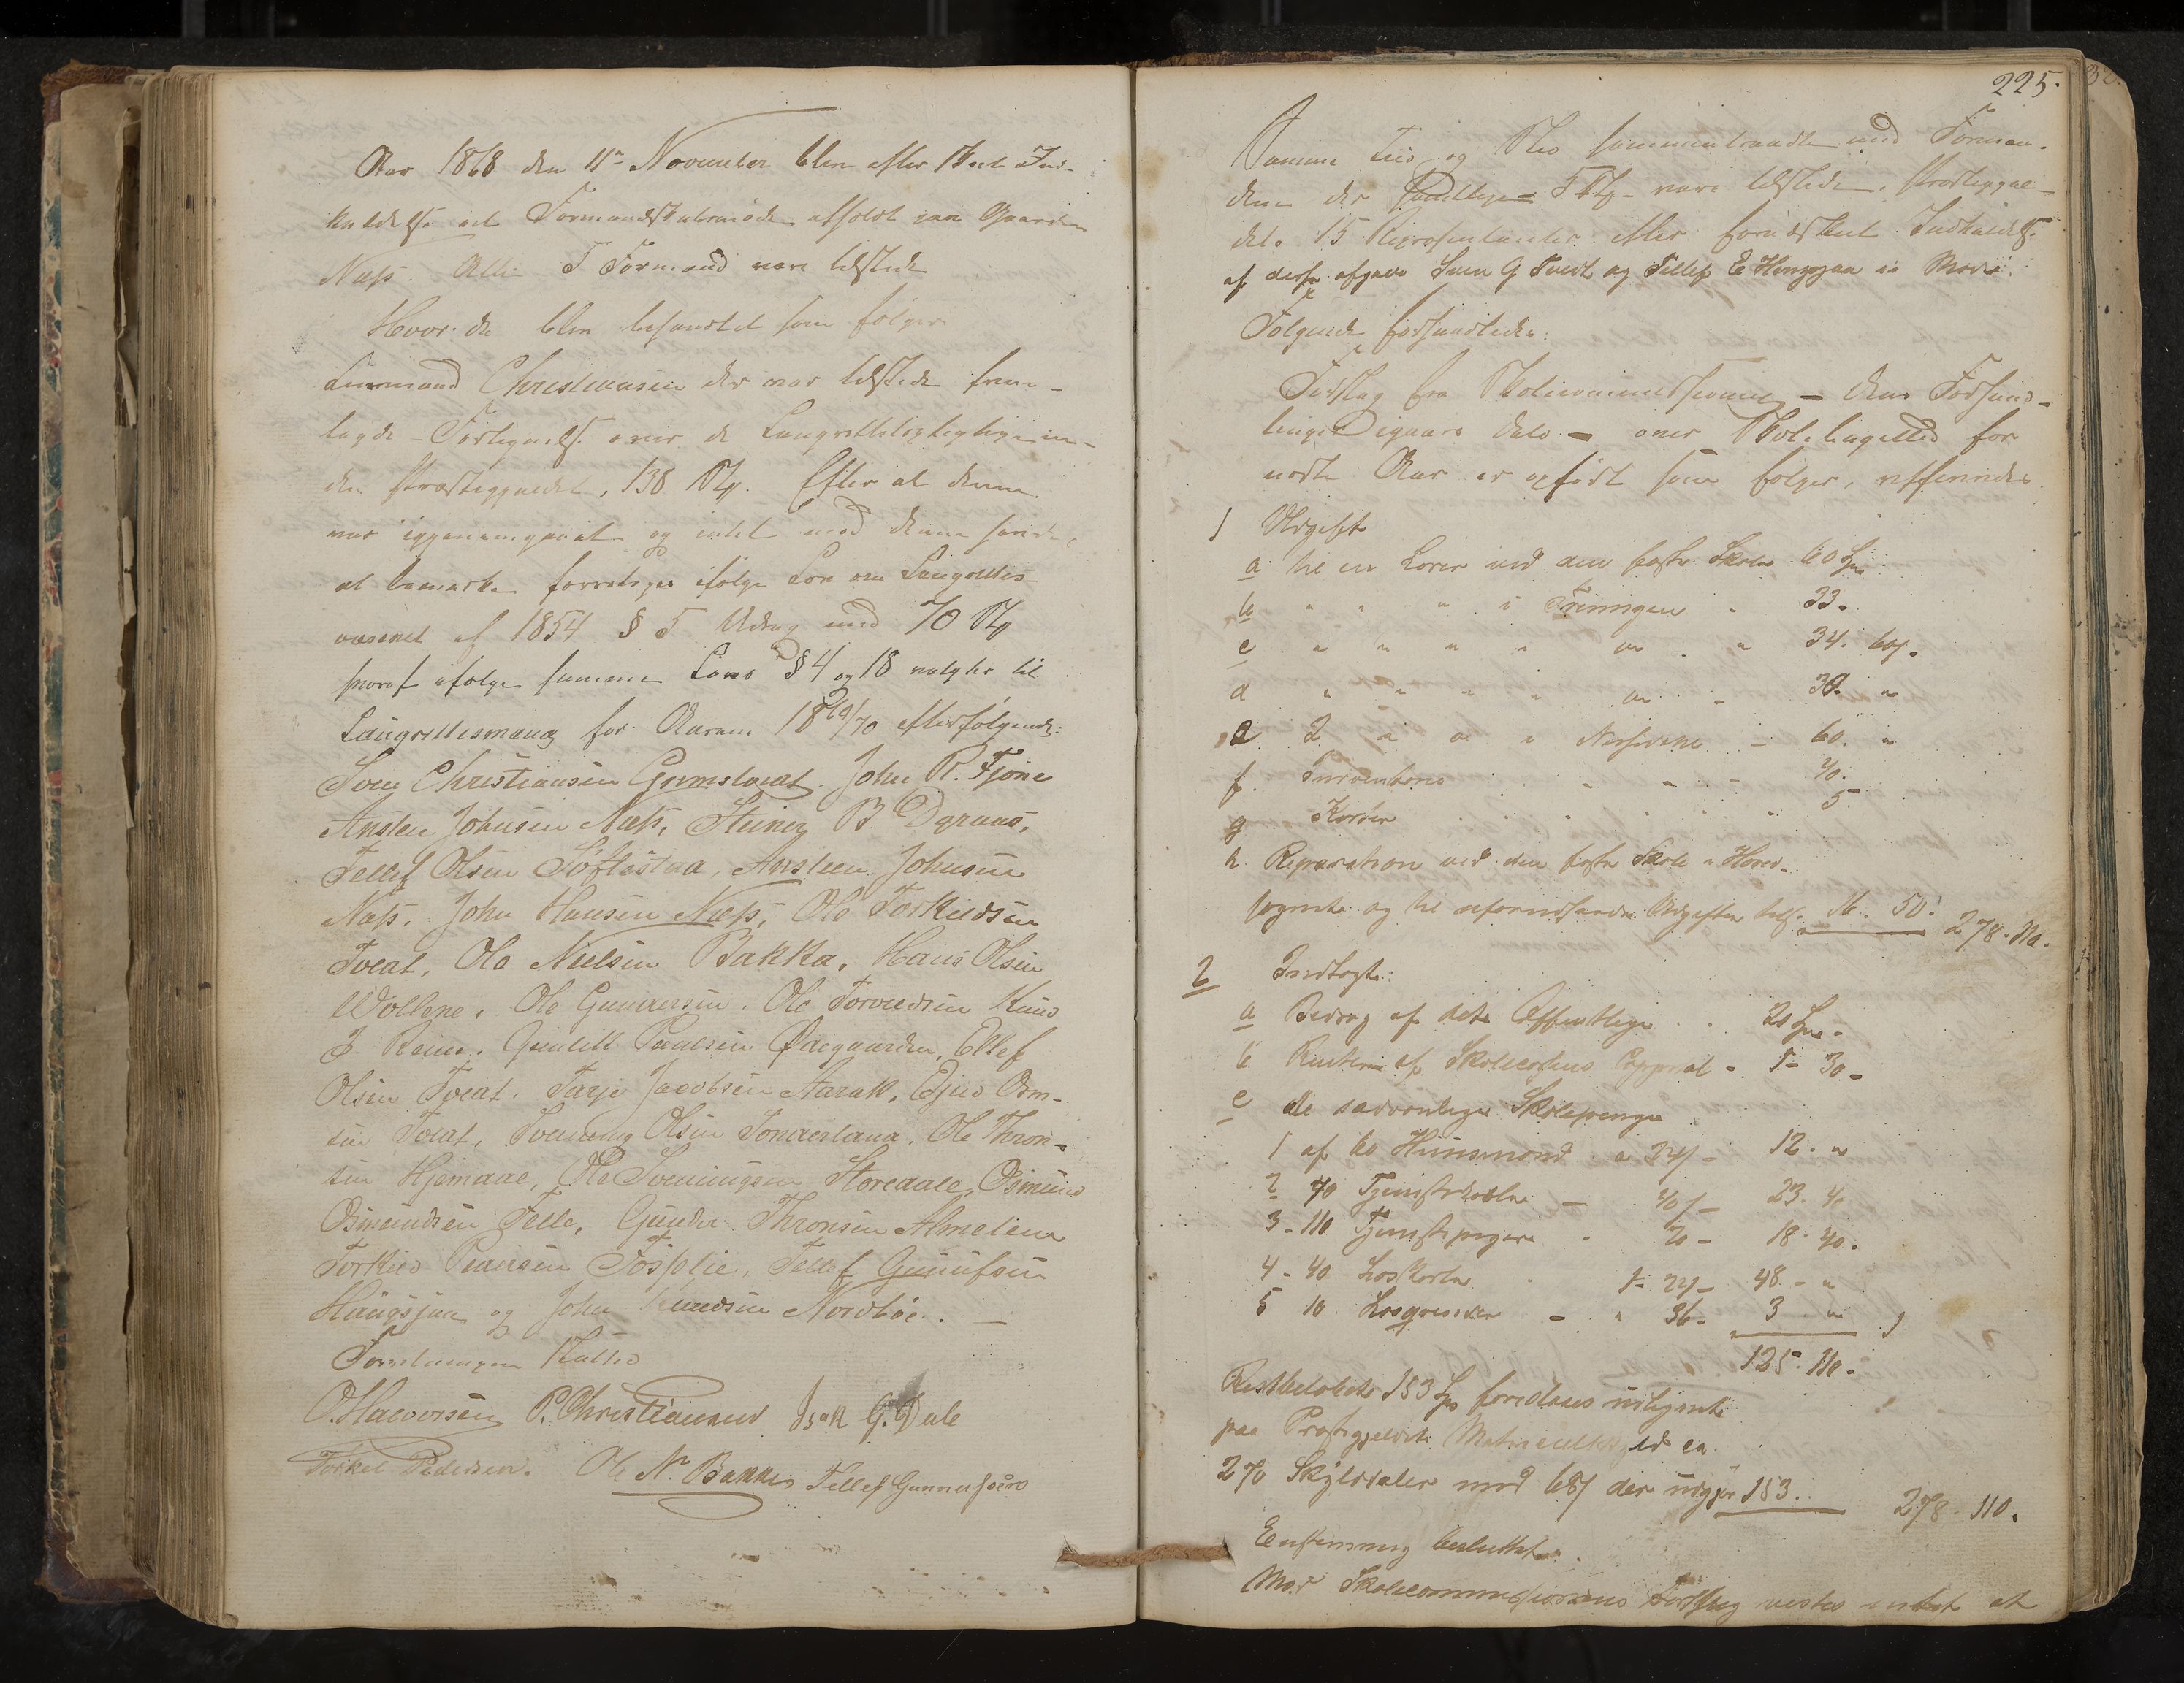 Aar 1868 den 11te November blev efter skeet Ind-
kaldelse et Formandskabsmøde afholdt paa Gaarden
Næss. Alle 5 Formænd vare tilstede
Hvor da blev behandlet som følger
Lensmand Christiansen der var tilstede frem-
lagde Fortegnelse over de Laugrettespligtige in-
den Præstegjældet, 138 Stk. Efter at denne
var igjennemgaaet og intet mod denne fandtes
at bemærke foretoges ifølge Lov om Laugrettes
væsenet af 1854 § 5 Udtog med 70 Stk
hvoraf ifølge samme Lovs § 4 og 18 valgtes til
Laugrettesmænd for Aarene 1869/70 efterfølgende:
Sven Christiansen Grimstvat. John R. Fjone
Ansten Johnsen Næss, Steiner B. Dgraus,
Tellef Olsen Tøftestaa, Ansteen Johnsen
Næss, John Hansen Næss, Ole Torkildsen
Tveat, Ola Nielsen Bakka, Hans Olsen
Wollene, Ole Gunnersen. Ole Torvildsen Knud
J. Reine. Gunlik Paulsen Ødegaarden, Ellef
Olsen Tveat. Tarje Jacobsen Aarak, Eivind Orm-
sen Tveat, Svenung Olsen Sønnerland. Ole Thron-
sen Hjemaae, Ole Sveningsen Storedale, Osmund
Osmundsen Felle, Gunder Thronsen Almelien
Torkild Pedersen Fosslie, Tellef Gunufsen
Haugsjaa og John Knudsen Nordbøe.
Forretningen sluttet
O. Halvorsen P. Christiansen Isak G. Dale
Torkel Pedersen. Ole N. Bakka Tellef Gunnufsen
225.
Samme Tiid og Sted sammentraadte med Forman-
dene der samtlige 5 Stk vare tilstede, Præstegjæl-
dets 15 Repræsentanter efter forudskeet Indkaldelse
af disse afgave Sven G Tveit og Tellef E Haugsjaa ei Møde.
Følgende forhandledes:
Forslag fra Skolecommissionen - dens Forhand-
linger igaars Dato - over Skolebudgettet for
næste Aar er opført som følger, nemlig
1 Udgift
a til en Lærer ved den faste Skole 60 Spd
b " " " i Treungen " 33.
c " " " " " " 34. 60 s.
d " " " " " - 30. "
e 2 " " i Nissedal - 60. "
f. Inventarie - - - 40.
g Kasserer . . . . . 5
h Reparation ved den faste Skole i Hoved-
sognet og til uforudseende Udgifter tils. 16. 50. 278. 110.
2 Indtægt:
a Bidrag af det Offentlige . . 20 Spd -
b Renter af Skolecassens Capital - 1 - 30 -
c de sædvanlige Skolepenge
1 af 60 Huusmænd a 24 s - 12. "
2 70 Tjenestekarle - 40 s - 23. 40
3 - 110 Tjenestepiger - 20 - 18. 40.
4 - 40 Løskarle 1 - 24 - 48 - "
5 10 Løsqvinder - " 36 - 3 . "
125. 110.
Restbeløbet 153 Spd foreslaaes udlignet
paa Præstegjældets Matriculskyld ca.
270 Skylddaler med 68 s der udgjør 153. 278. 110.
Eenstemmig besluttet.
Mod Skolecommissionens Forslag vistes intet at